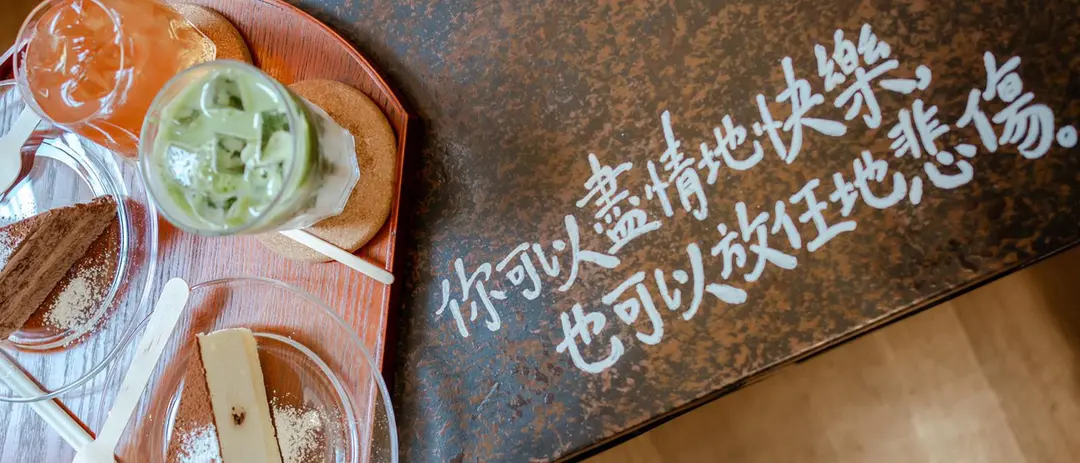 你可以盡情地快樂，
也可以放任地悲傷。